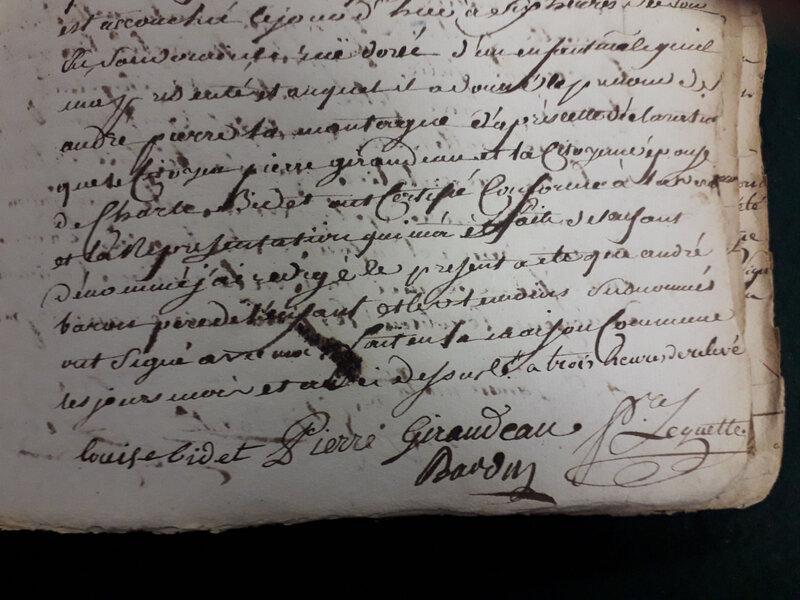 est accouchée le jour d'hui à six heures de soir
en enfant male quil
m'a présenté et auquel il a donné le prenom de
andré pierre la montagne d'après cette déclaration
que le Citoyen pierre giraudeau et la Citoyenne épouse
de Charle Bidet ont Certifié Conforme à la
et la Representation qui m'a été faite de lenfant
dénommé j'ai redigé le present acte que andré
baron pere de l'enfant et les temoins surnommés
ont Signé avec moi fait en la maison Commune
les jours mois et an ci dessus à trois heures de relevé
Louise bidet Pierre Giraudeau
Baron Lequette